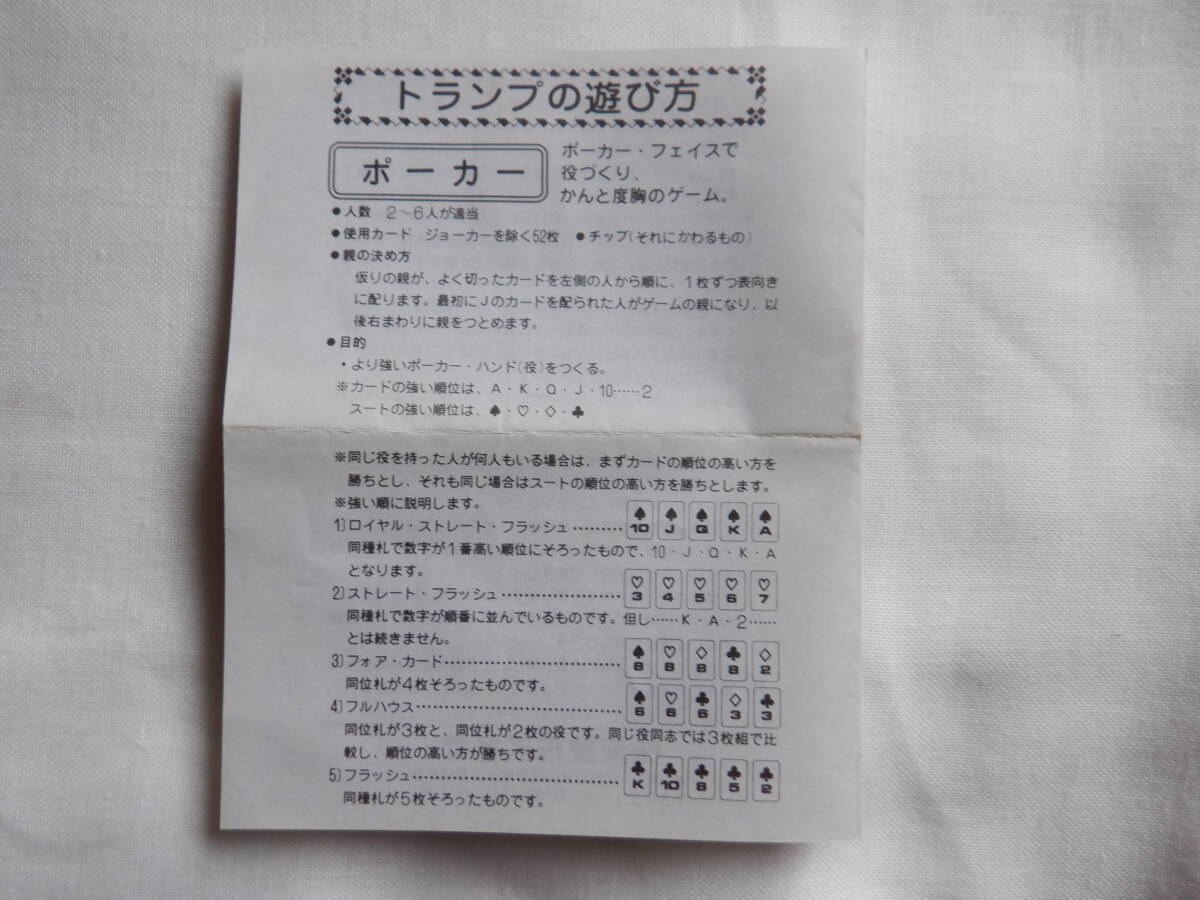 トランプの遊び方
ポーカー
ポーカー・フェイスで
役づくり、
かんと度胸のゲーム。
●人数 2〜6人が適当
●使用カード ジョーカーを除く52枚 ●チップ(それにかわるもの)
●親の決め方
仮りの親が、よく切ったカードを左側の人から順に、1枚ずつ表向き
に配ります。最初にJのカードを配られた人がゲームの親になり、以
後右まわりに親をつとめます。
●目的
・より強いポーカー・ハンド(役)をつくる。
※カードの強い順位は、A・K・Q・J・10……2
スートの強い順位は、♠・♡・♢・♣
※同じ役を持った人が何人もいる場合は、まずカードの順位の高い方を
勝ちとし、それも同じ場合はスートの順位の高い方を勝ちとします。
※強い順に説明します。
1)ロイヤル・ストレート・フラッシュ………
♠10 ♠J ♠Q ♠K ♠A
同種札で数字が1番高い順位にそろったもので、10・J・Q・K・A
となります。
2)ストレート・フラッシュ…………………
♡3 ♡4 ♡5 ♡6 ♡7
同種札で数字が順番に並んでいるものです。但し……K・A・2……
とは続きません。
3)フォア・カード……………………………
♠8 ♡8 ♢8 ♣8 ♢2
同位札が4枚そろったものです。
4)フルハウス…………………………………
♠6 ♡6 ♣6 ♢3 ♣3
同位札が3枚と、同位札が2枚の役です。同じ役同志では3枚組で比
較し、順位の高い方が勝ちです。
5)フラッシュ…………………………………
♣K ♣10 ♣8 ♣5 ♣2
同種札が5枚そろったものです。